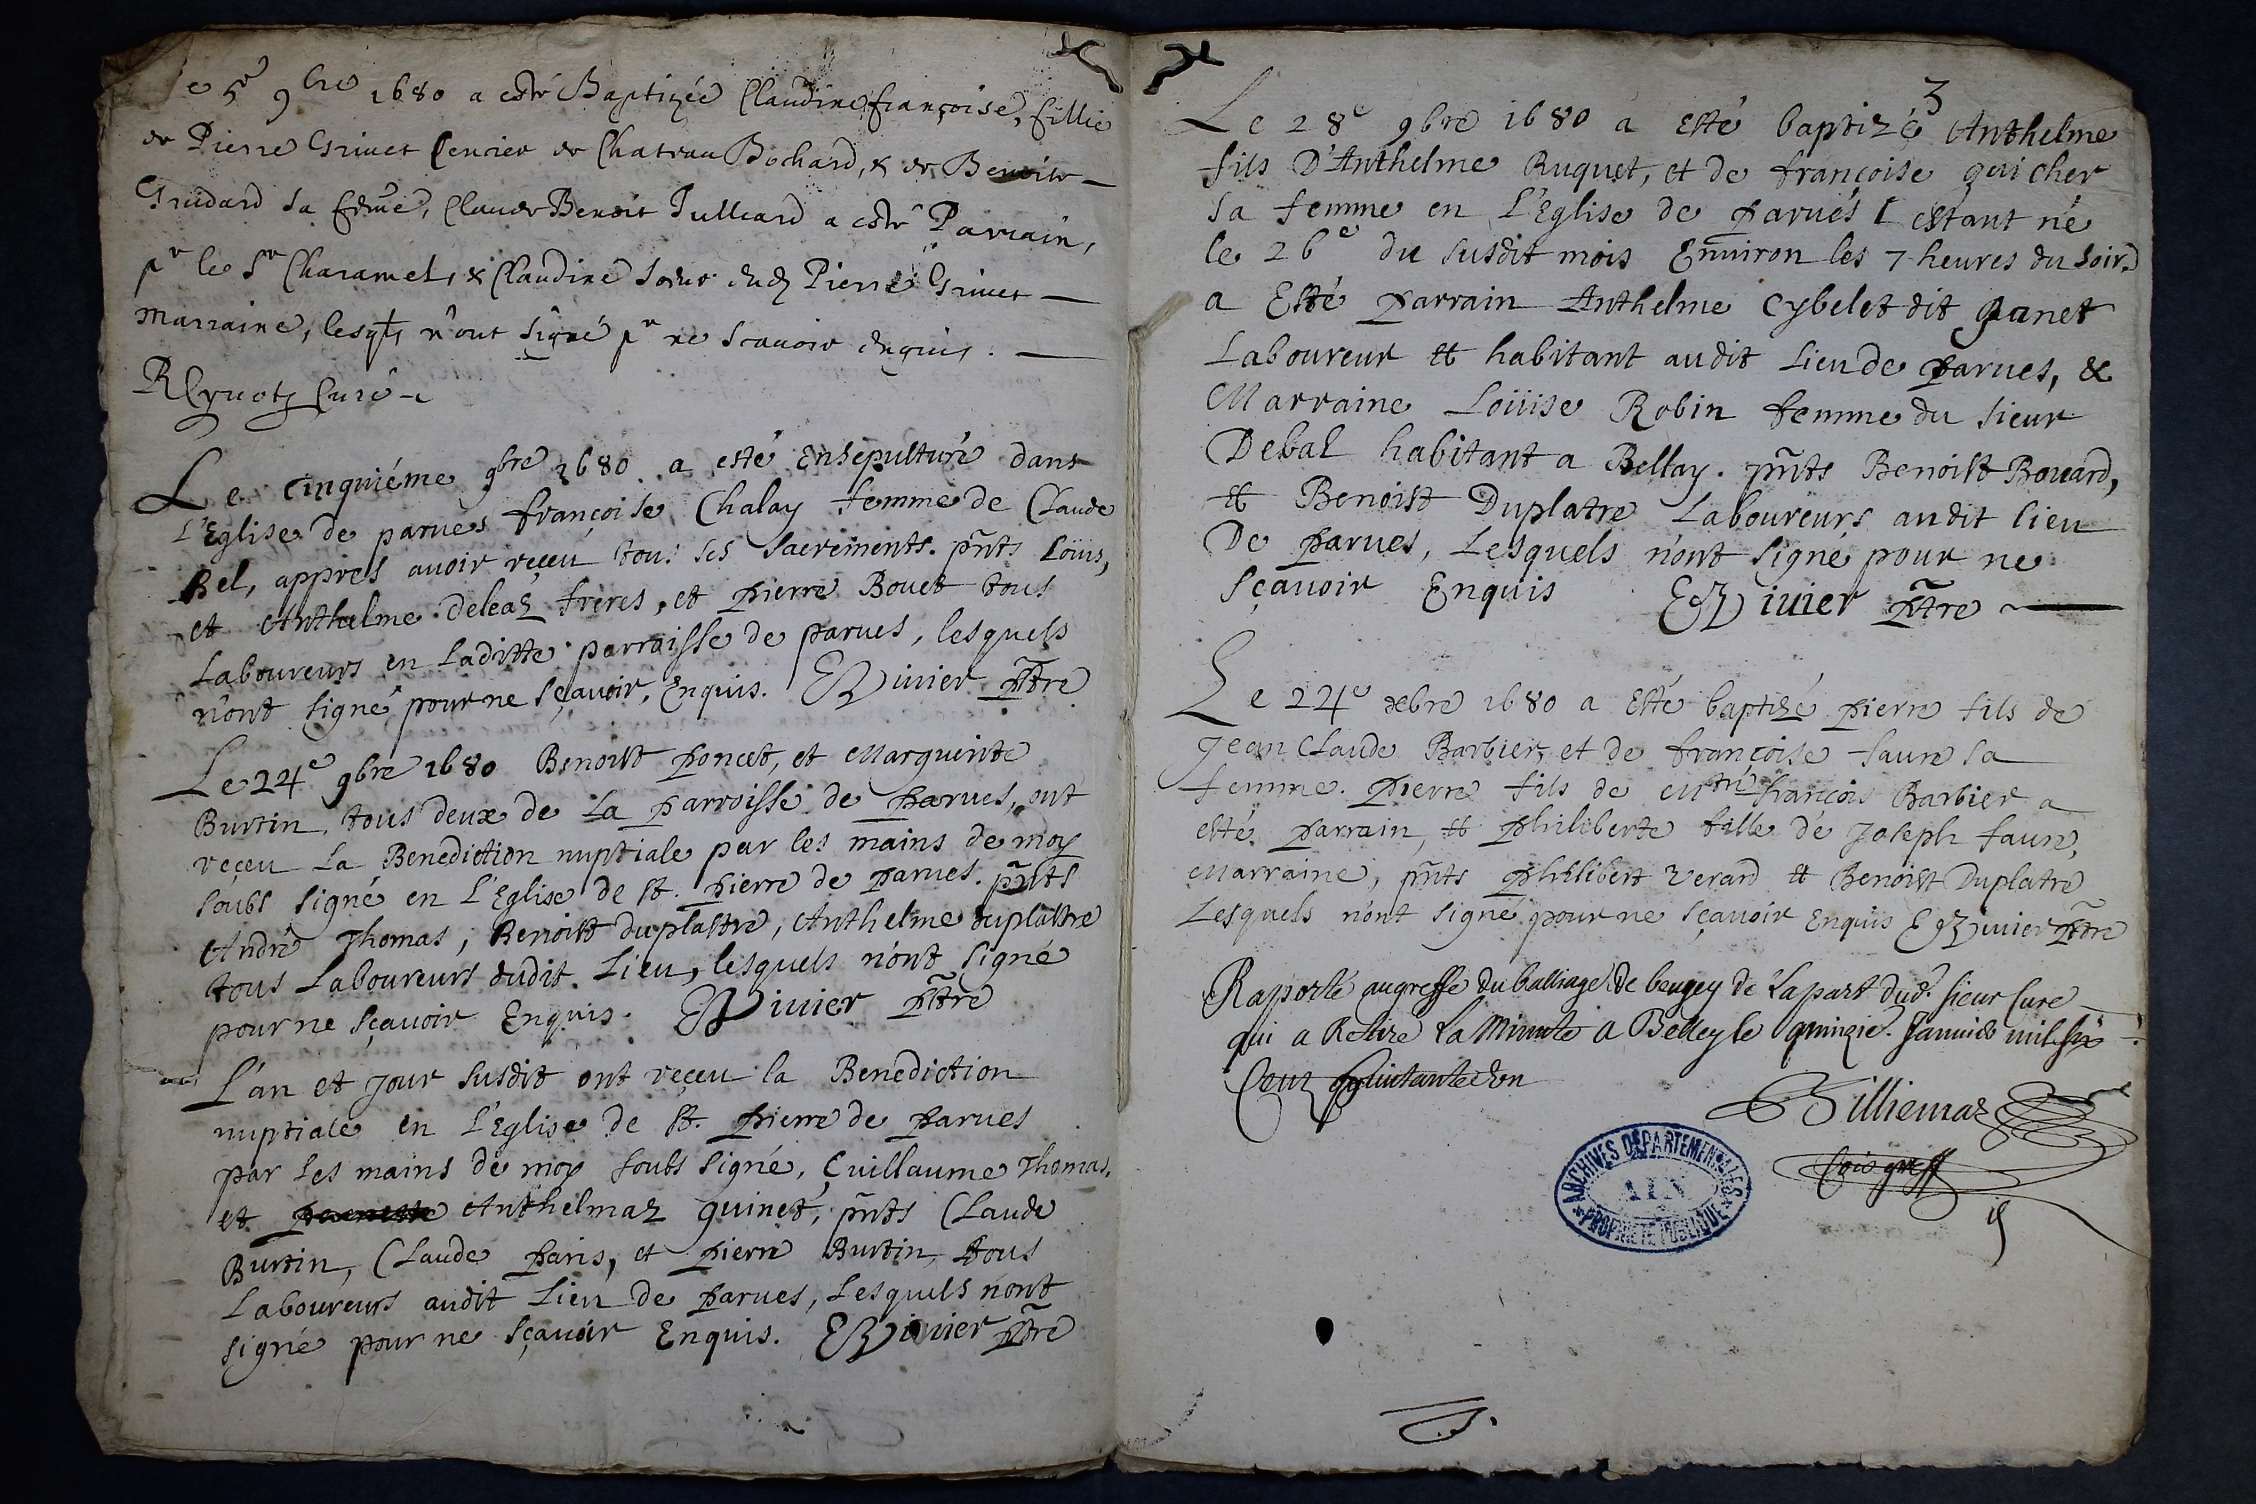 e 5e 9bre 1680 a esté Baptizée Claudine françoise, fillie
de Pierre Grinet de Chateau Bochard, & de Benoite
Grudard sa feme, Claude Benoit Julliard a esté Parrain,
pr le Sr Charamel, & Claudine soeur dud Pierre Grinet
Marraine, lesqls n'ont signé pr ne scavoir enquis.
Curé
Le cinquiéme 9bre 1680 a esté ensepulturé dans
L'Eglise de parues françoise Chalay femme de Claude
Bel, appres auoir reçeu tou: ses sacrements. pnts Loüis,
et Anthelme deleaz freres, et pierre Bouet tous
Laboureurs en Laditte parroisse de parues, lesquels
n'ont signé pour ne sçauoir, Enquis. E Diuier ptre
Le 24e 9bre 1680 Benoist poncet, et Marguerite
Burtin, tous deux de La parroisse de parues, ont
reçeu La Benediction nuptiale par les mains de moy
soubs signé en L'Eglise de St. pierre de parues. pnts
André Thomas, Benoist duplastre, Anthelme duplastre
tous Laboureurs dudit Lieu, lesquels n'ont signé
pour ne sçauoir Enquis. E Diuier ptre
L'an et jour susdit ont reçeu la Benediction
nuptiale en L'Eglise de St. pierre de parues
par les mains de moy soubs signé, Guillaume Thomas,
et Anthelmaz quinet, pnts Claude
Burtin, Claude paris, et pierre Burtin, tous
Laboureurs audit Lieu de parues, Lesquels n'ont
signé pour ne sçauoir Enquis. E Diuier ptre
3
Le 28e 9bre 1680 a Esté baptizé Anthelme
fils D'Anthelme Ruquet, et de françoise guicher
sa femme en L'Eglise de parues estant né
le 26e du susdit mois Enuiron les 7 heures du soir.
a Esté parrain Anthelme Cybelet dit ganet
Laboureur et habitant audit Lieu de parues, &
Marraine Loüise Robin femme du sieur
Debal habitant a Bellay. pnts Benoist Bouard,
et Benoist Duplatre Laboureurs audit lieu
De parues, Lesquels n'ont signé pour ne
sçauoir Enquis E Diuier ptre
Le 24e xbre 1680 a Esté baptizé pierre fils de
Jean Claude Barbier, et de françoise faure sa
femme. pierre fils de françois Barbier a
esté parrain, et philiberte fille de Joseph faure,
Marraine, pnts philibert Verard et Benoist Duplatre
Lesquels n'ont signé pour ne sçauoir Enquis E Diuier ptre
Raporté au greffe du balliage de beugey de la part dud. sieur Curé
qui a Retiré La Minute a Belley le quinzie. Januier mil six
Cent huictante et un
Billiemaz
Cois greff
ARCHIVES DEPARTEMENTALES
AIN
PROPRIETE PUBLIQUE